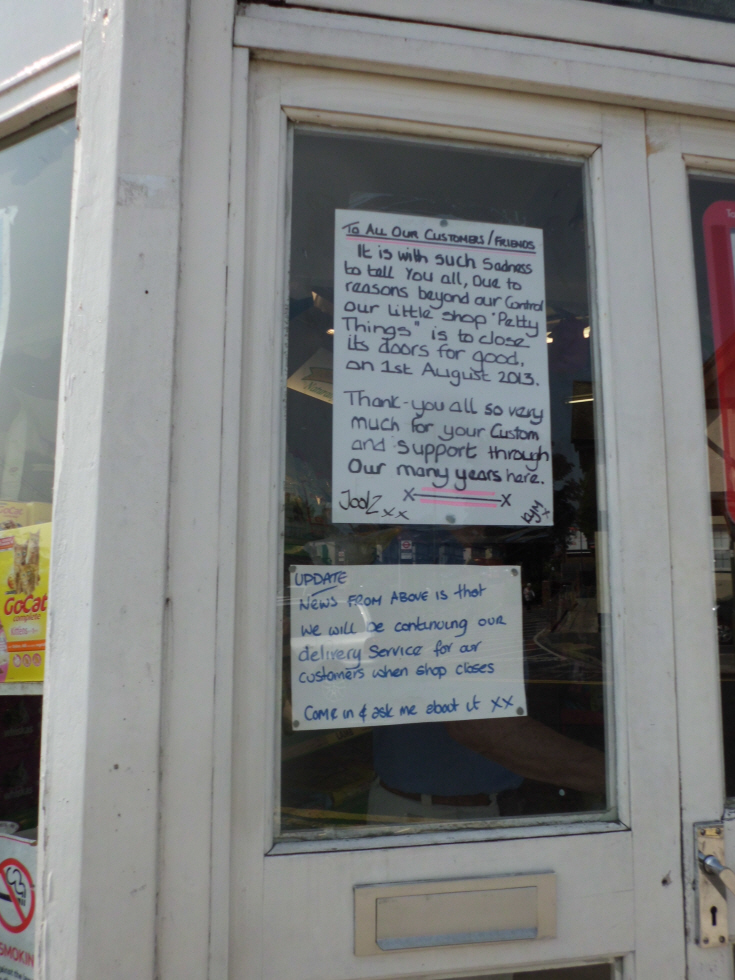 To All Our Customers/Friends
It is with such Sadness
to tell You all, Due to
reasons beyond our Control
our little shop "Petty
Things" is to close
its doors for good,
on 1st August 2013.
Thank-you all so very
much for your Custom
and Support through
Our many years here.
Joolz xx
X X
UPDATE
NEWS FROM ABOVE is that
We will be continuing our
delivery Service for our
customers when shop closes
Come in & ask me about it xx
GoCat
complete
SMOKIN